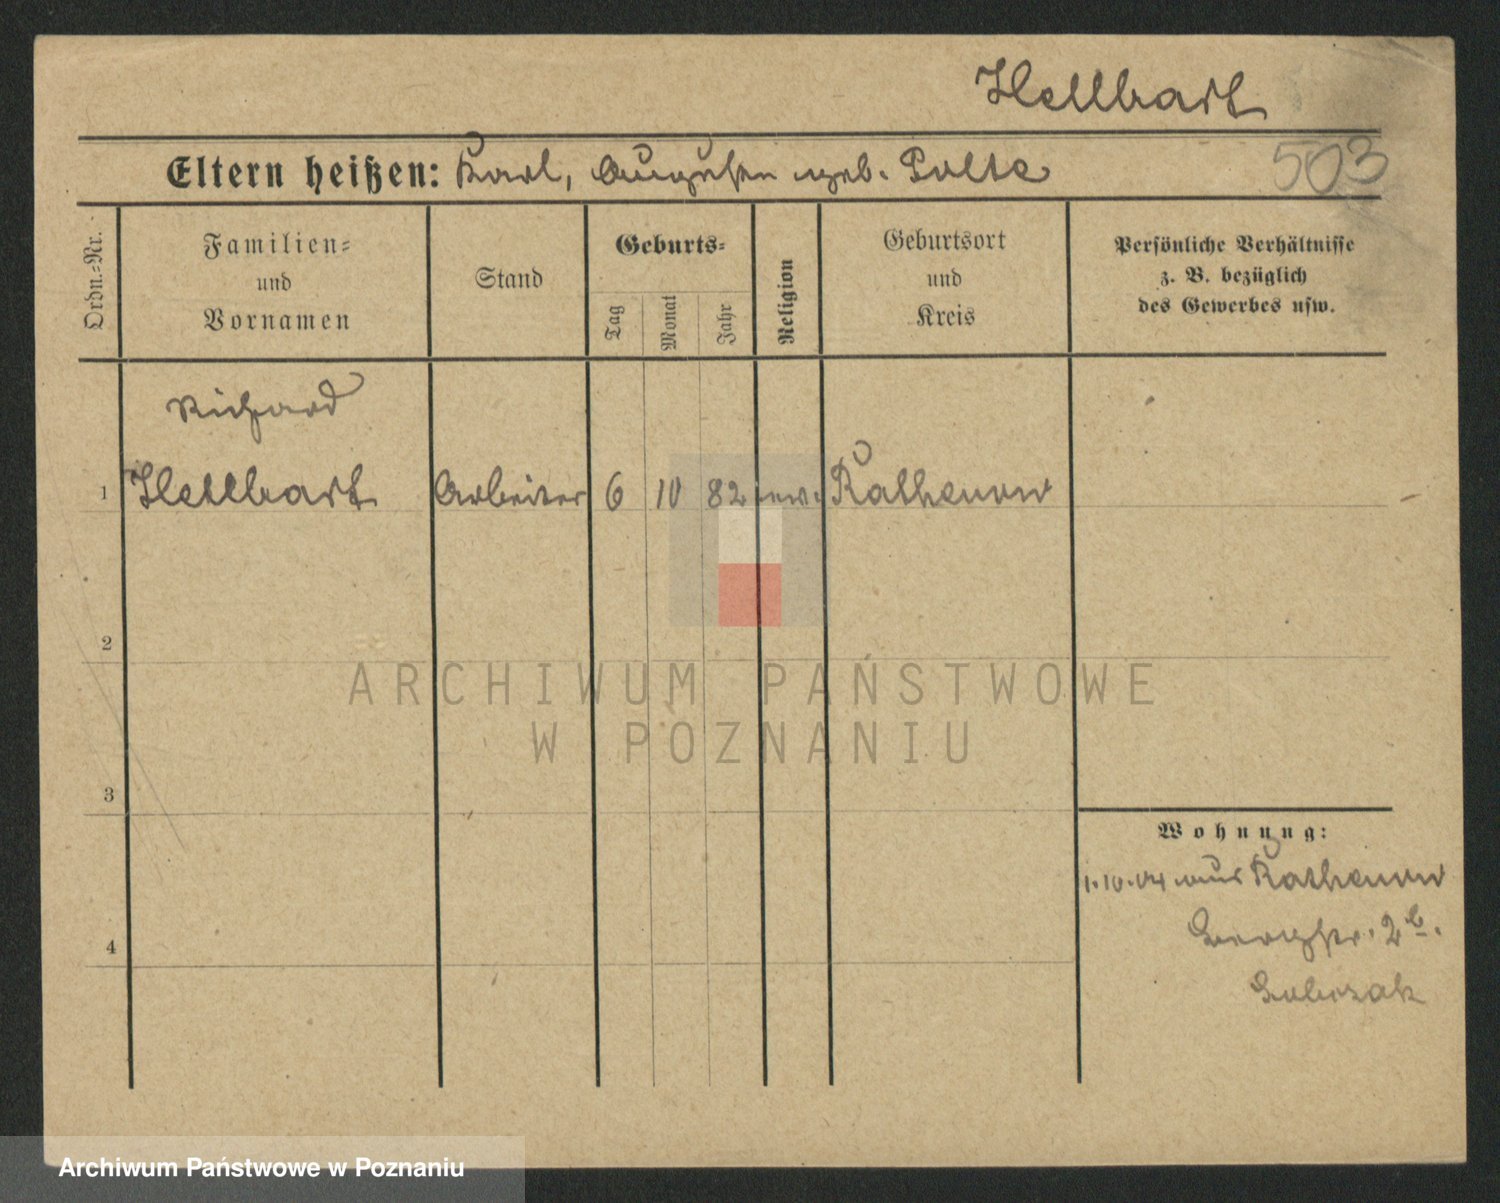 Hellbart
Eltern heißen: Karl, Auguste geb. Polte
503
Ordn.=Nr.
Familien=
und
Vornamen
Stand
Geburts=
Tag
Monat
Jahr
Religion
Geburtsort
und
Kreis
Persönliche Verhältnisse
z. B. bezüglich
des Gewerbes usw.
Richard
1 Hellbart Arbeiter 6 10 82 ev. Rathenow
2
ARCHIWUM PAŃSTWOWE
W POZNANIU
3
Wohnung:
1.10.04 aus Rathenow
2b.
4
Archiwum Państwowe w Poznaniu